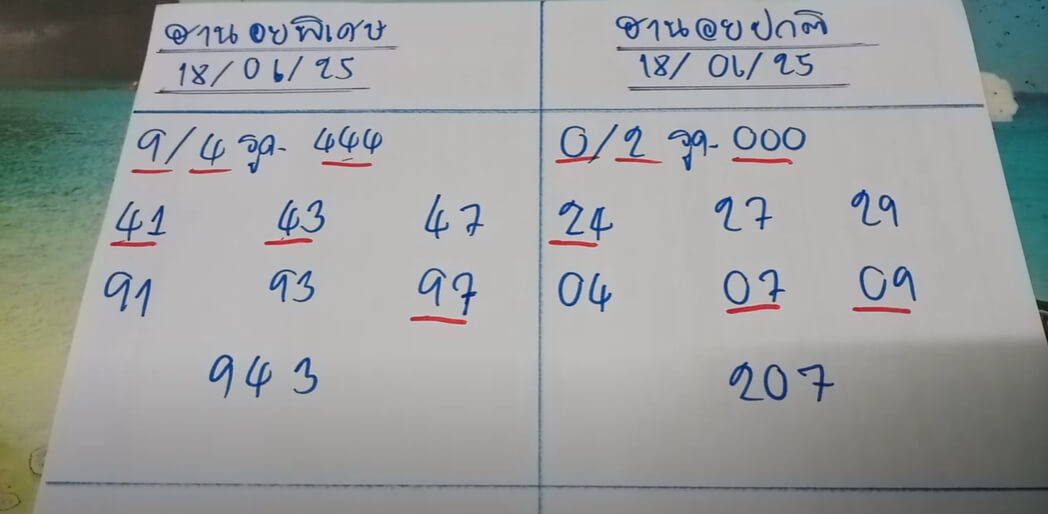 ฮานอยพิเศษ
18/06/25
9/4 รูด- 444
41 43 47
91 93 97
943
ฮานอยปกติ
18/06/25
0/2 รูด- 000
24 27 29
04 07 09
207